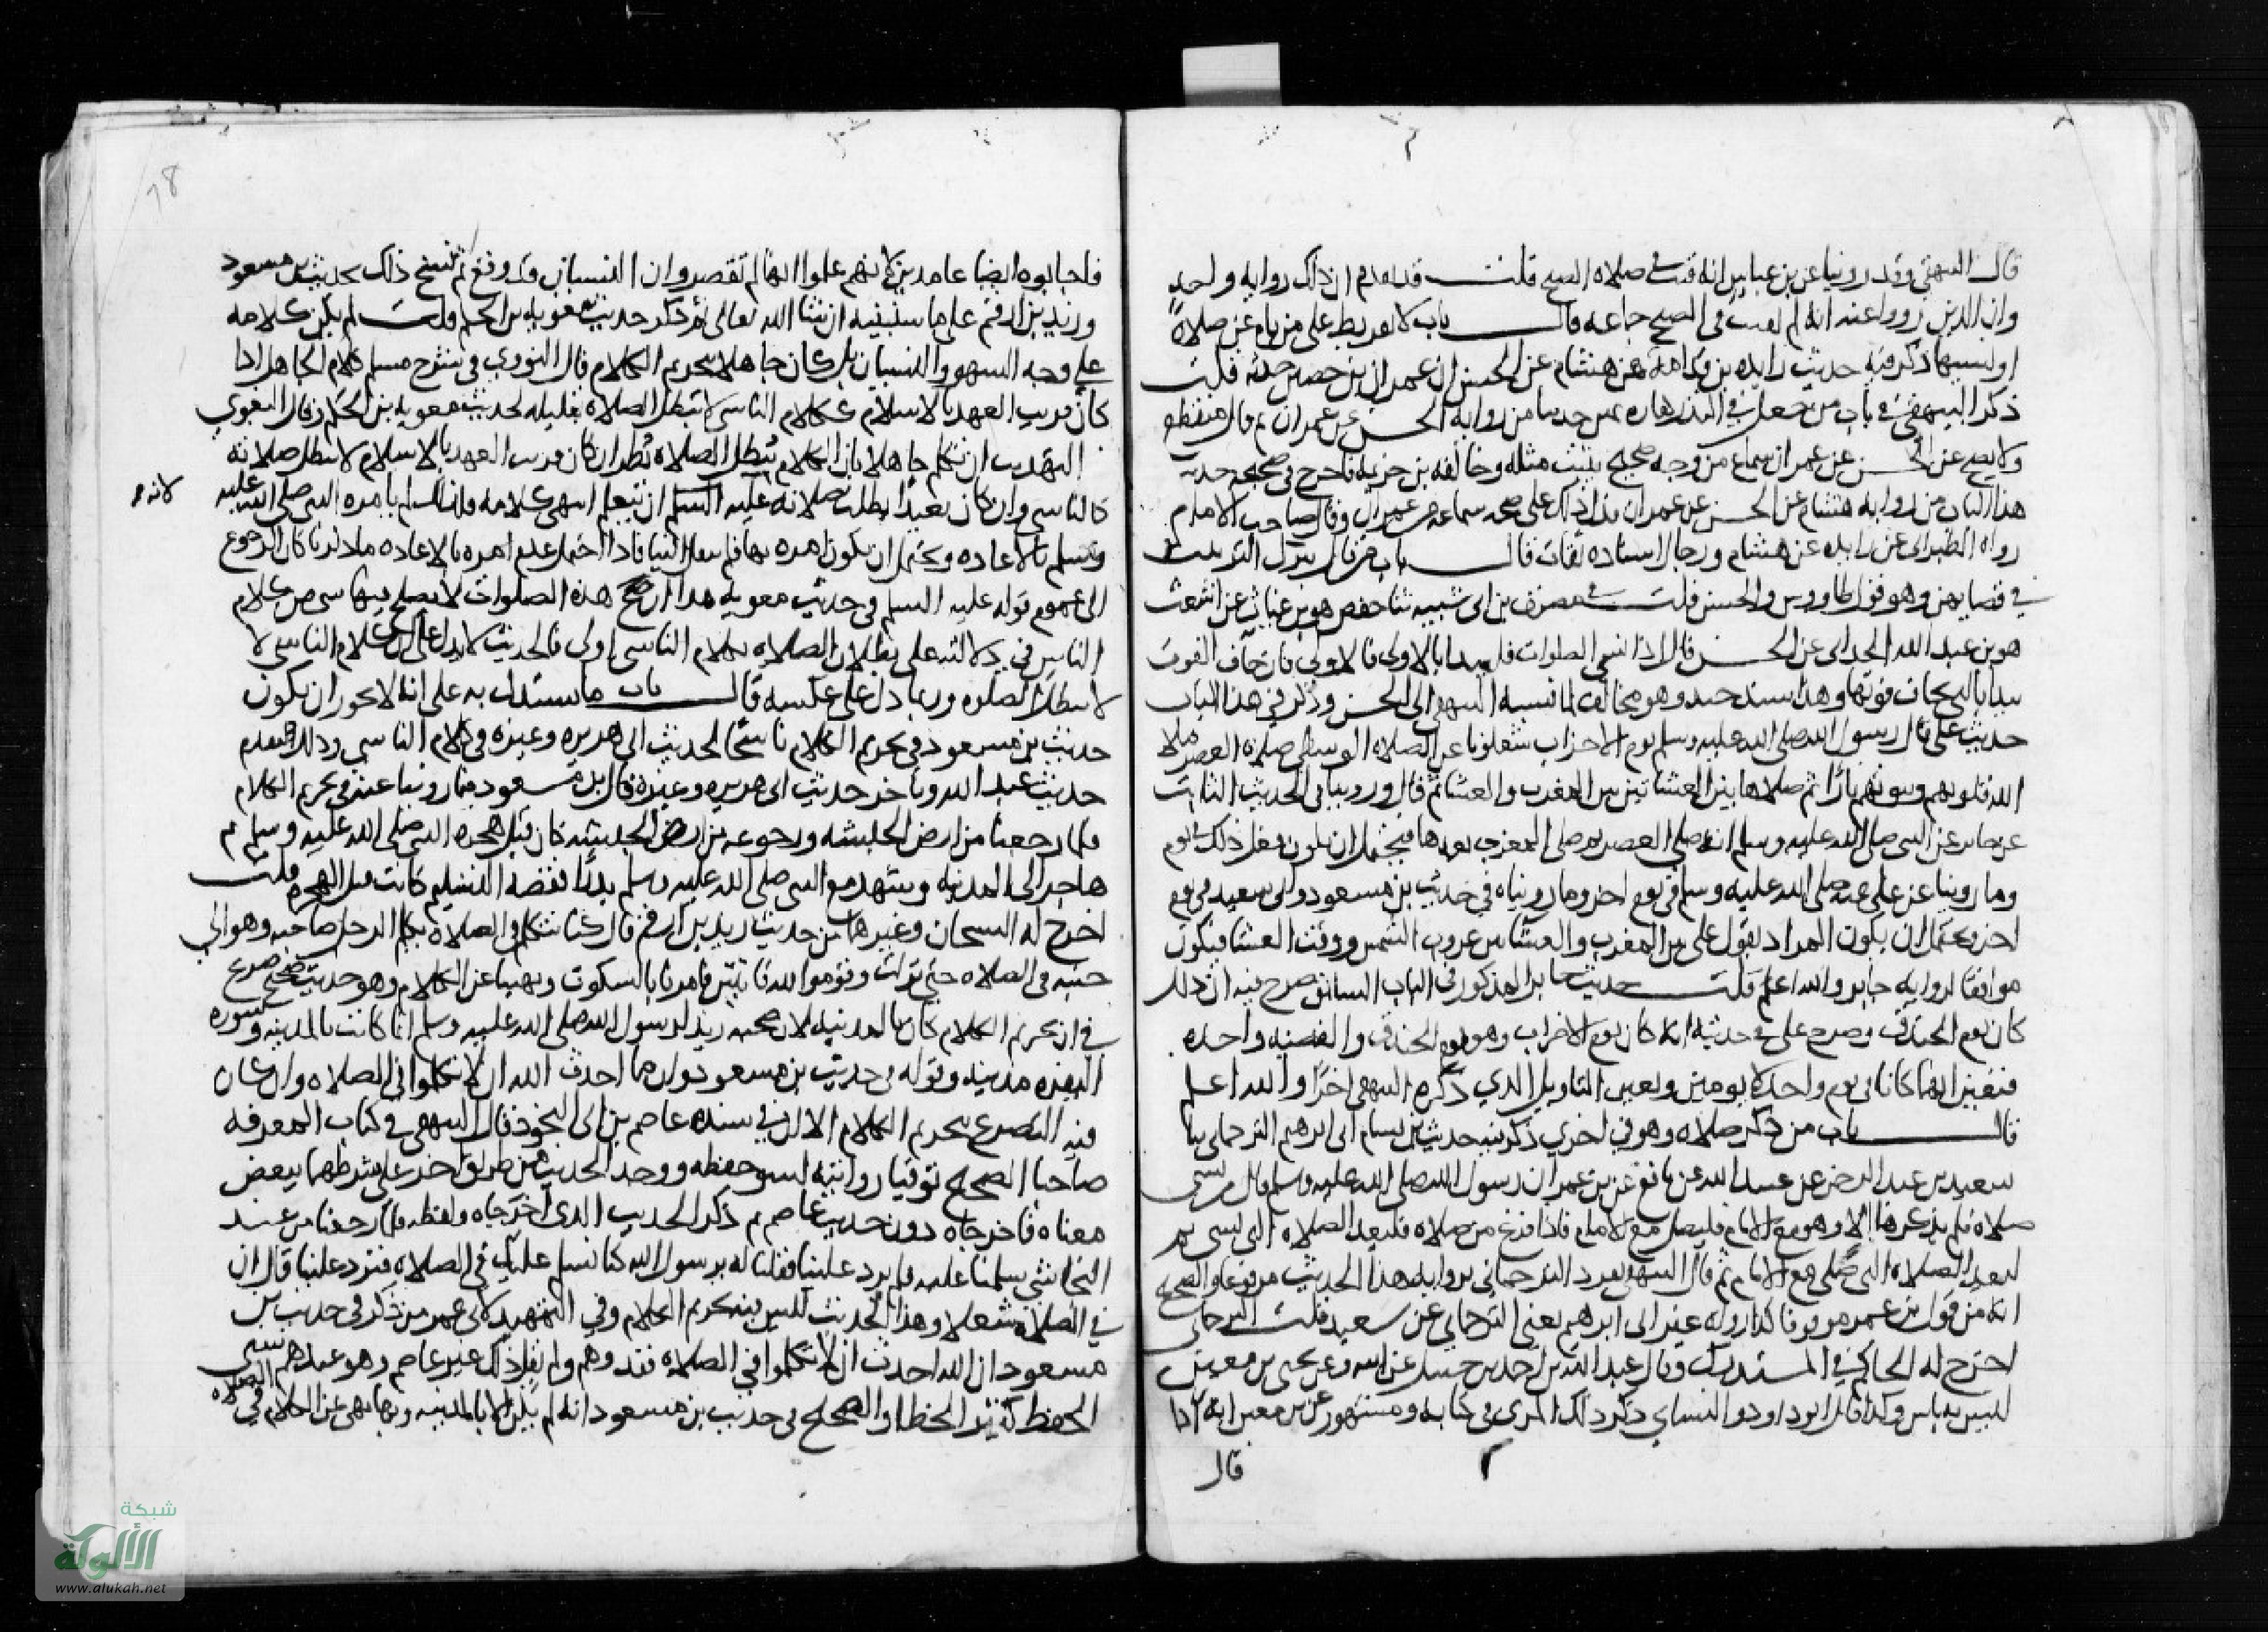 قال البيهقي وقد روينا عن بن عباس انه قنت في صلاه الصبح قلت قد تقدم ان ذلك روايه واحده
وان الذين رووا عنه انه لم يقنت في الصبح جماعه قال باب لا تفريط على من نام عن صلاة
او نسيها ذكر فيه حديث زايده بن قدامة عن هشام عن الحسن ان عمران بن حصين حدثه قلت
ذكر البيهقي في باب من جعل في النذر كفاره يمين حديثا من روايه الحسن عن عمران ثم قال منقطع
ولا يصح عن الحسن عن عمران سماع من وجه صحيح يثبت مثله وخالفه بن خزيمه فاخرج في صحيحه حديث
هذا الباب من روايه هشام عن الحسن عن عمران فدل ذلك على صحه سماعه من عمران وقال صاحب الامام
رواه الطبراني عن زايده عن هشام ورجال اسناده ثقات قال باب من قال بترك الترتيب
في قضايهن وهو قول طاووس والحسن قلت في مصنف بن ابي شيبه ثنا حفص هو بن غياث عن اشعث
هو بن عبد الله الحداني عن الحسن قال اذا نسي الصلوات فليبدا بالاولى فالاولى فان خاف الفوت
يبدا بالتي يخاف فوتها وهذا سند جيد وهو مخالف لما نسبه البيهقي الى الحسن وذكر في هذا الباب
حديث علي قال رسول الله صلى الله عليه وسلم يوم الاحزاب شغلونا عن الصلاه الوسطى صلاة العصر ملا
الله قلوبهم وبيوتهم نارا ثم صلاها بين العشائين بين المغرب والعشا ثم قال وروينا في الحديث الثابت
عن جابر عن النبي صلى الله عليه وسلم انه صلى العصر ثم صلى المغرب بعدها فيحتمل ان يكون فعل ذلك في يوم
وما روينا عن علي عنه صلى الله عليه وسلم في يوم اخر وما رويناه في حديث بن مسعود وابي سعيد في يوم
اخر ويحتمل ان يكون المراد بقول علي بين المغرب والعشا بين غروب الشمس ووقت العشا فيكون
موافقا لروايه جابر والله اعلم قلت حديث جابر المذكور في الباب السابق صرح فيه ان ذلك
كان يوم الخندق وصرح علي في حديثه انه كان يوم الاحزاب وهو يوم الخندق والقضيه واحده
فتعين انهما كانا في يوم واحد لا يومين وتعين التاويل الذي ذكره البيهقي اخرا والله اعلم
قال باب من ذكر صلاه وهو في اخرى ذكر فيه حديث بن بسام ابي ابرهيم الترجماني ثنا
سعيد بن عبد الرحمن عن عبيد الله عن نافع عن بن عمر ان رسول الله صلى الله عليه وسلم قال من نسي
صلاة فلم يذكرها الا وهو مع الامام فليصل مع الامام فاذا فرغ من صلاته فليعد الصلاه التي نسي ثم
ليعد الصلاه التي صلى مع الامام ثم قال البيهقي تفرد الترجماني بروايه هذا الحديث مرفوعا والصحيح
انه من قول بن عمر موقوفا كذا رواه غير ابي ابرهيم يعني الترجماني عن سعيد قلت الترجماني
اخرج له الحاكم في المستدرك وقال عبد الله بن احمد بن حنبل عن ابيه وعن يحيى بن معين
ليس به باس وكذا قال ابو داود والنساي ذكر ذلك المزي في كتابه ومشهور عن بن معين انه اذا
قال
فاجابوه ايضا عامدين لانهم علموا انها لم تقصر وان النسيان قد وقع ثم نسخ ذلك بحديث بن مسعود
وزيد بن ارقم على ما سنبينه ان شا الله تعالى ثم ذكر حديث معويه بن الحكم قلت لم يكن كلامه
على وجه السهو والنسيان بل كان جاهلا بتحريم الكلام قال النووي في شرح مسلم كلام الجاهل اذا
كان قريب العهد بالاسلام ككلام الناسي لا تبطل الصلاة بقليله لحديث معويه بن الحكم وقال البغوي
التهذيب ان تكلم جاهلا بان الكلام يبطل الصلاه نظر ان كان قريب العهد بالاسلام لا تبطل صلاته
كالناسي وان كان بعيدا بطلت صلاته عليه ان يتعلم انتهى كلامه فان قيل لم يامره النبي صلى الله عليه
لانه
وسلم بالاعاده ويحتمل ان يكون امره بها فلم ينقل الينا فاذا احتمل عدم امره بالاعاده ما ذكرنا كان الرجوع
الى عموم قوله عليه السلم في حديث معويه هذا ان هذه الصلوات لا يصلح فيها شي من كلام
الناس في دلالته على بطلان الصلاه بكلام الناسي اولى فالحديث لا يدل على ان كلام الناسي لا
لا يبطل الصلوه وربما دل على عكسه قال باب ما يستدل به على انه لا يجوز ان يكون
حديث بن مسعود في تحريم الكلام ناسخا لحديث ابي هريره وغيره في كلام الناسي وذلك لتقدم
حديث عبد الله وتاخر حديث ابي هريره وغيره قال بن مسعود فيما روينا عنه في تحريم الكلام
فلما رجعنا من ارض الحبشه ورجوعه من ارض الحبشه كان قبل هجره النبي صلى الله عليه وسلم ثم
هاجر الى المدينه وشهد مع النبي صلى الله عليه وسلم بدرا فقصه التسليم كانت قبل الهجره قلت
اخرج له الشيخان وغيرهما من حديث زيد بن ارقم قال كنا نتكلم في الصلاة يكلم الرجل صاحبه وهو الى
جنبه في الصلاه حتى نزلت وقوموا لله قانتين فامرنا بالسكوت ونهينا عن الكلام وهو حديث صحيح صريح
في ان تحريم الكلام كان بالمدينه لان صحبه زيد لرسول الله صلى الله عليه وسلم انما كانت بالمدينه وسوره
البقره مدنيه وقوله في حديث بن مسعود وان مما احدث الله ان لا تكلموا في الصلاه وان كان
فيه التصريح بتحريم الكلام الا ان في سنده عاصم بن ابي النجود قال البيهقي في كتاب المعرفه
صاحبا الصحيح توقيا روايته لسو حفظه ووجدا الحديث من طريق اخر على شرطهما ببعض
معناه فاخرجاه دون حديث عاصم ثم ذكر الحديث الذي اخرجاه ولفظه فلما رجعنا من عند
النجاشي سلمنا عليه فلم يرد علينا فقلنا له يرسول الله كنا نسلم عليك في الصلاه فترد علينا قال ان
في الصلاة شغلا وهذا الحديث ليس فيه تحريم الكلام وفي التمهيد لابي عمر من ذكر في حديث بن
مسعود ان الله احدث ان لا تكلموا في الصلاه فقد وهم ولم يقل ذلك غير عاصم وهو عندهم سيئ
الحفظ كثير الخطا والصحيح في حديث بن مسعود انه لم يكن الا بالمدينه وبها نهي عن الكلام في الصلاه
شبكة
الألوكة
www.alukah.net